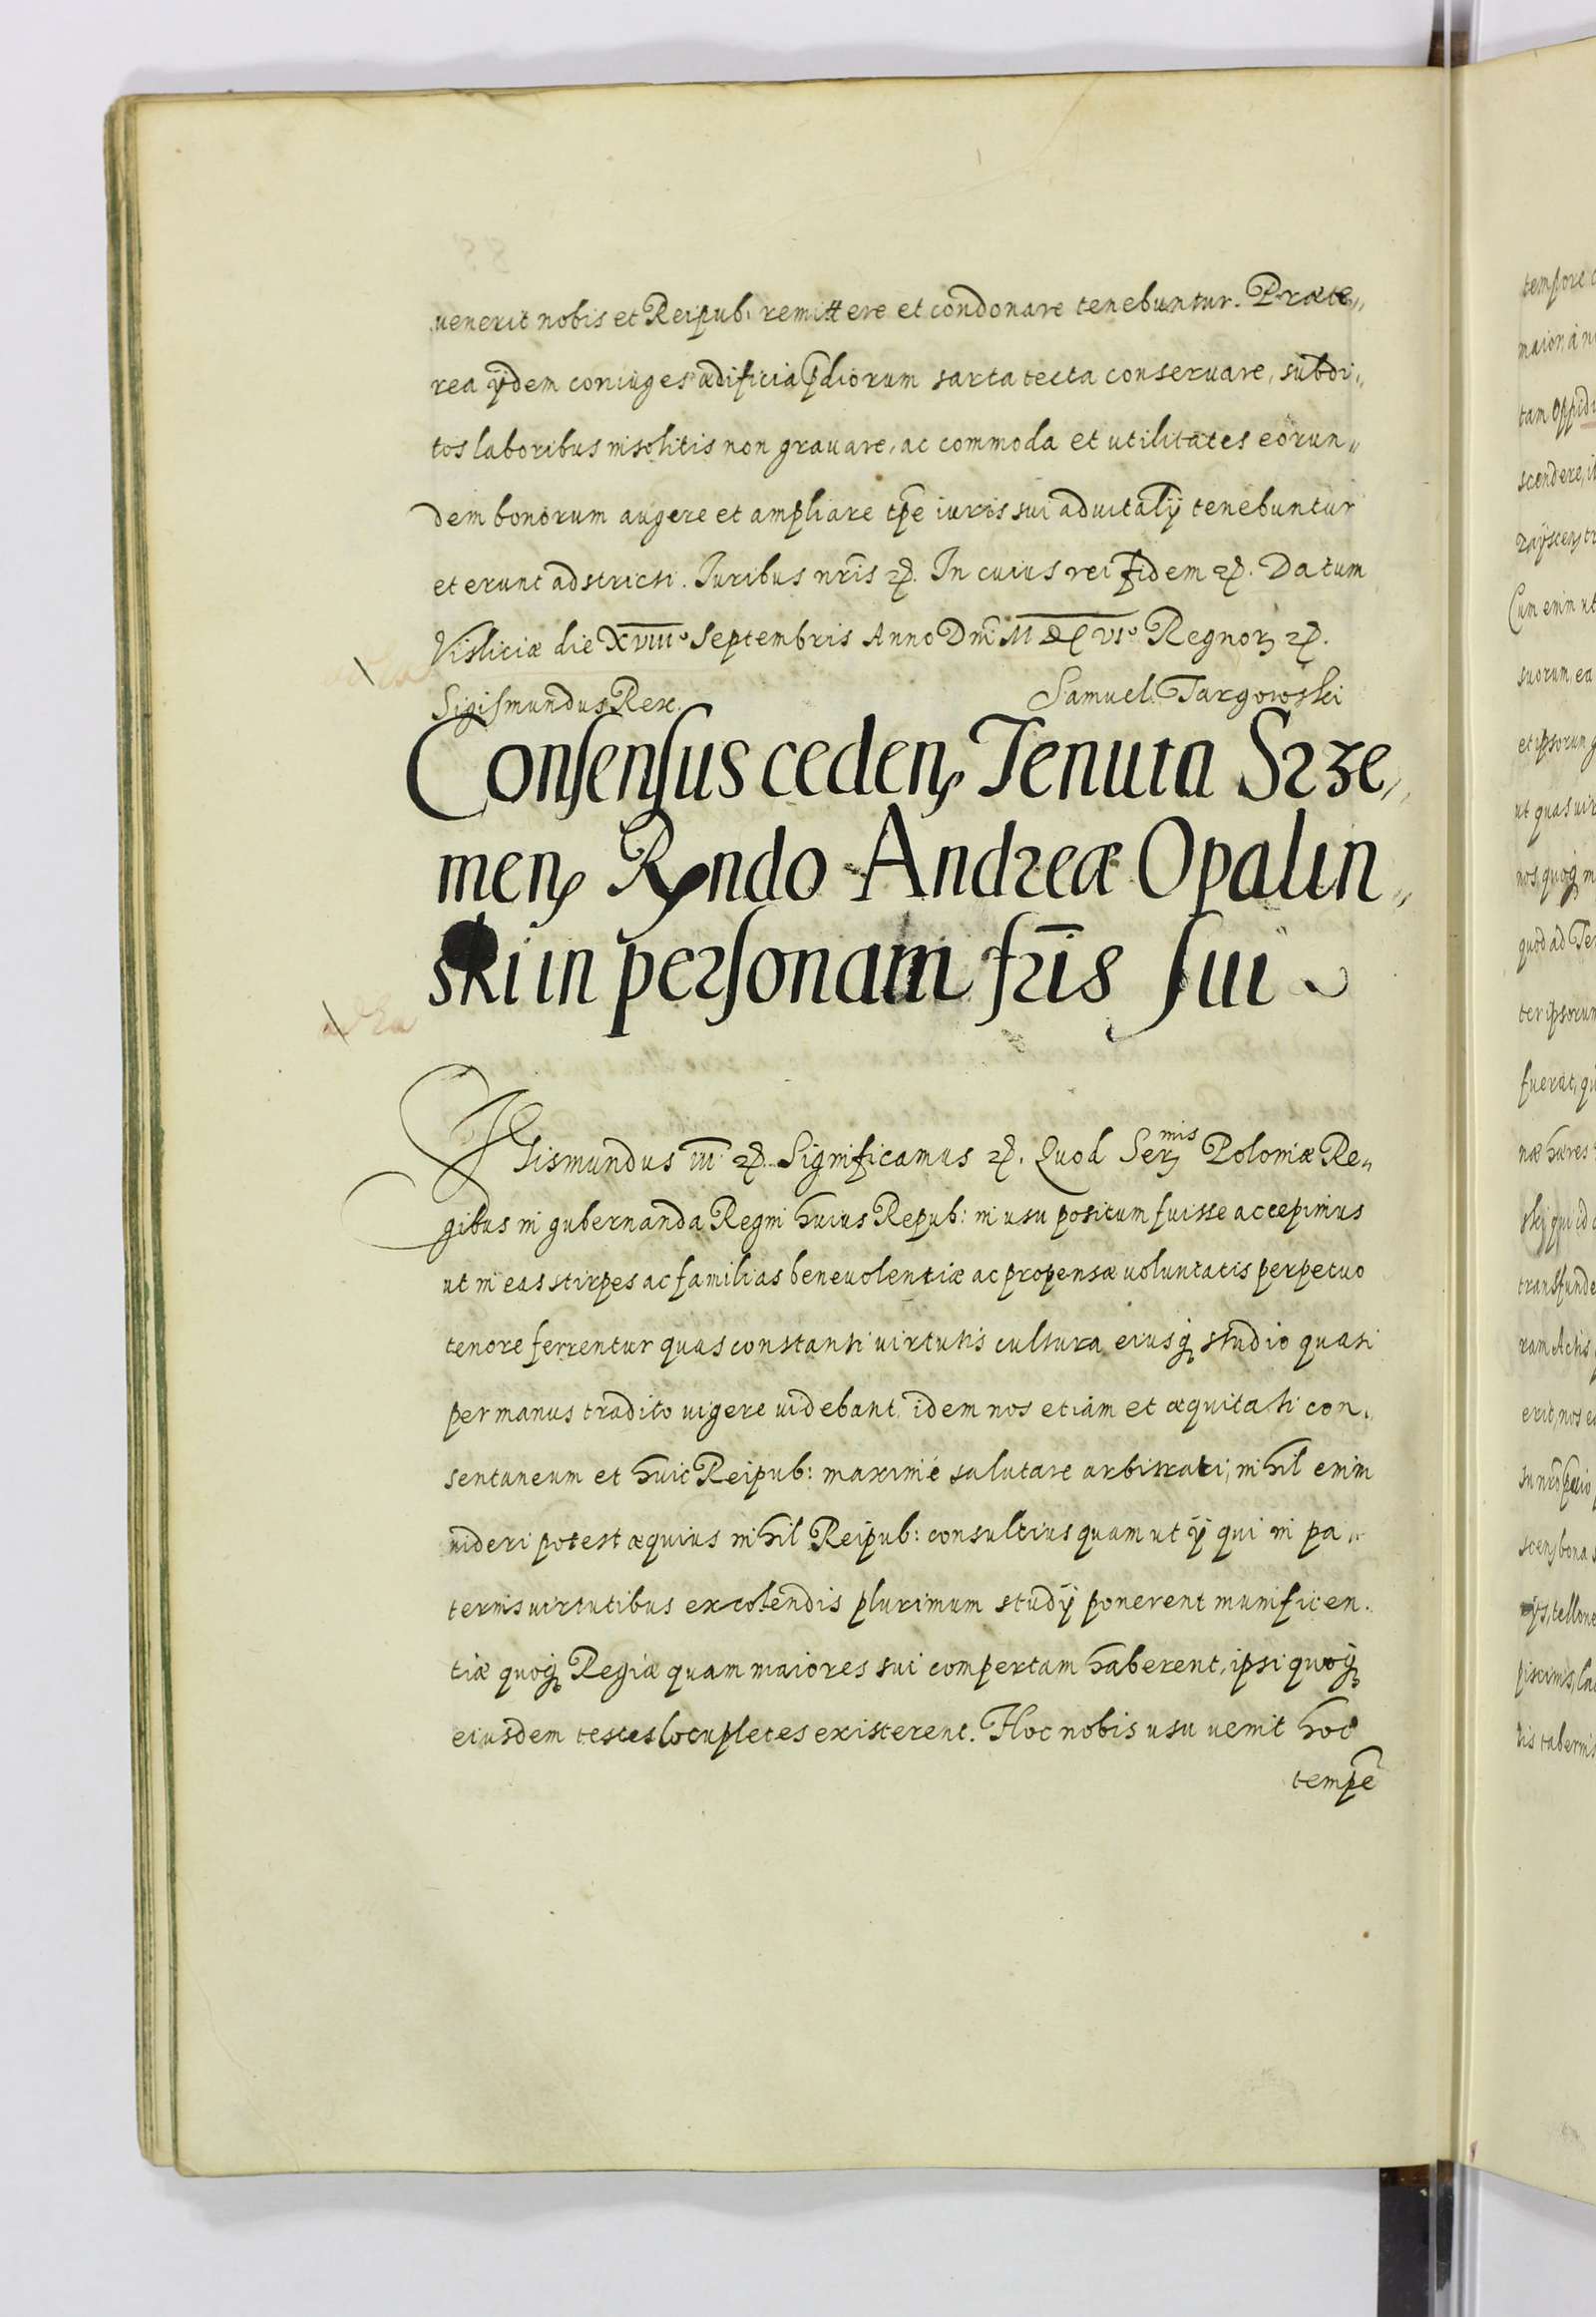 uenerit nobis et Reipub: remittere et condonare tenebuntur. Præte„
rea ijdem coniuges ædificia p̃diorum sarta tecta conseruare, subdi„
tos laboribus insolitis non grauare, ac commoda et utilitates eorun„
dem bonorum augere et ampliare tp̃e iuris sui aduitalij tenebuntur
et erunt adstricti. Iuribus nr̃is etc. In cuius rei fidem etc. Datum
Visliciæ die XVIIIº Septembris Anno Dnĩ M DC VIº Regnorꝫ etc.
Sigismundus Rex. Samuel Targowski
Consensus cedenꝭ Tenuta Srze„
menꝭ Rndo Andreæ Opalin„
ski in personam fr̃is sui
Sigismundus III etc. Significamus etc. Quod Serꝫmis Poloniæ Re„
gibus in gubernanda Regni huius Repub: in usu positum fuisse accepimus
ut in eas stirpes ac familias beneuolentiæ ac propensæ uoluntatis perpetuo
tenore ferrentur quas constanti uirtutis cultura eiusq̨ studio quasi
per manus tradito uigere uidebant, idem nos etiam et æquitati con„
sentaneum et huic Reipub: maximè salutare arbitrati; nihil enim
uideri potest æquius nihil Reipub: consultius quam ut ij qui in pa„
ternis uirtutibus excolendis plurimum studij ponerent munificen„
tiæ quoq̨ Regiæ quam maiores sui compertam haberent, ipsi quoq̨
eiusdem testes locupletes existerent. Hoc nobis usu uenit hoc
temp̃e